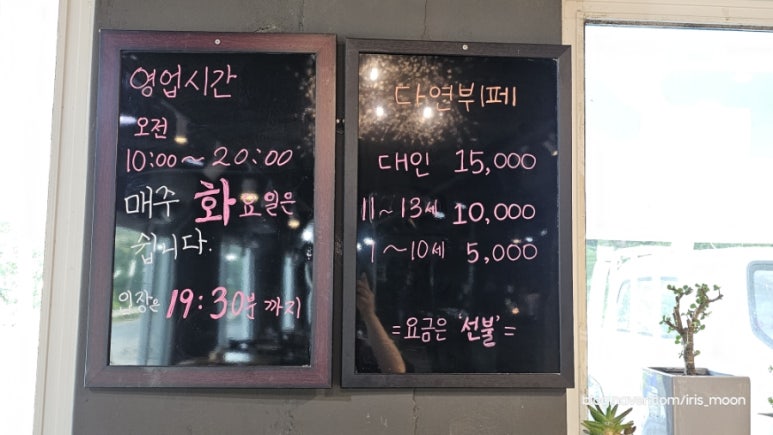 영업시간
오전
10:00~20:00
매주 화요일은
쉽니다.
입장은 19:30분 까지
다연뷔페
대인 15,000
11~13세 10,000
7~10세 5,000
=요금은 '선불'=
blog.naver.com/iris_moon